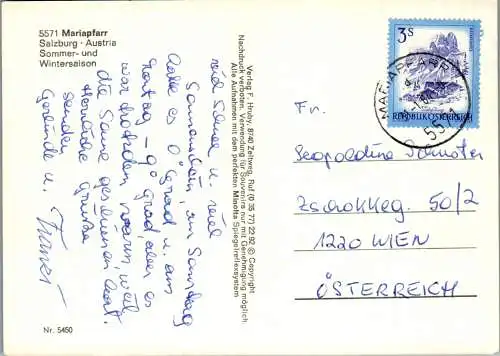 5571 Mariapfarr
Salzburg · Austria
Sommer- und
Wintersaison
viel Schnee u. viel
Sonnenschein, am Samstag
hatte es 0 Grad u. am
- 9 Grad, aber es
war trotzdem warm, weil
die Sonne geschienen hat.
Herzliche Grüße
senden
u.
Nr. 5450
Verlag F. Hruby, 8740 Zeltweg, Ruf (0 35 77) 22 92 © Copyright
Nachdruck verboten. Verwendung für Souvenirs nur mit Genehmigung möglich
Alle Aufnahmen mit dem perfekten Minolta Spiegelreflexsystem
3 S
REPUBLIK ÖSTERREICH
MARIAPFARR
557
Fr.
Leopoldine
50/2
1220 WIEN
ÖSTERREICH